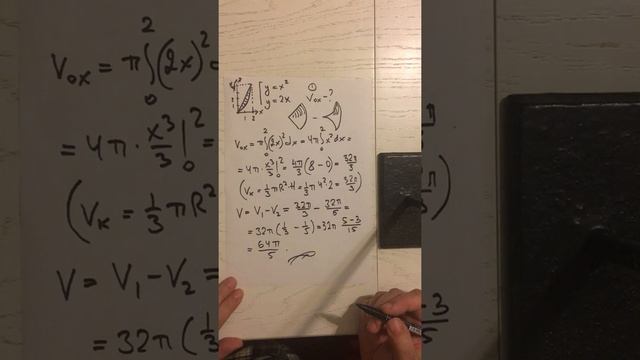 y = x²
y = 2x
①
Vox - ?
Vox = π∫₀²(2x)²dx = 4π∫₀²x²dx =
= 4π · x³/3 |₀² = 4π/3 (8 - 0) = 32π/3
(Vк = 1/3 πR²·H = 1/3 π 4²·2 = 32π/3)
V = V₁ - V₂ = 32π/3 - 32π/5 =
= 32π (1/3 - 1/5) = 32π 5-3/15
= 64π/5 .